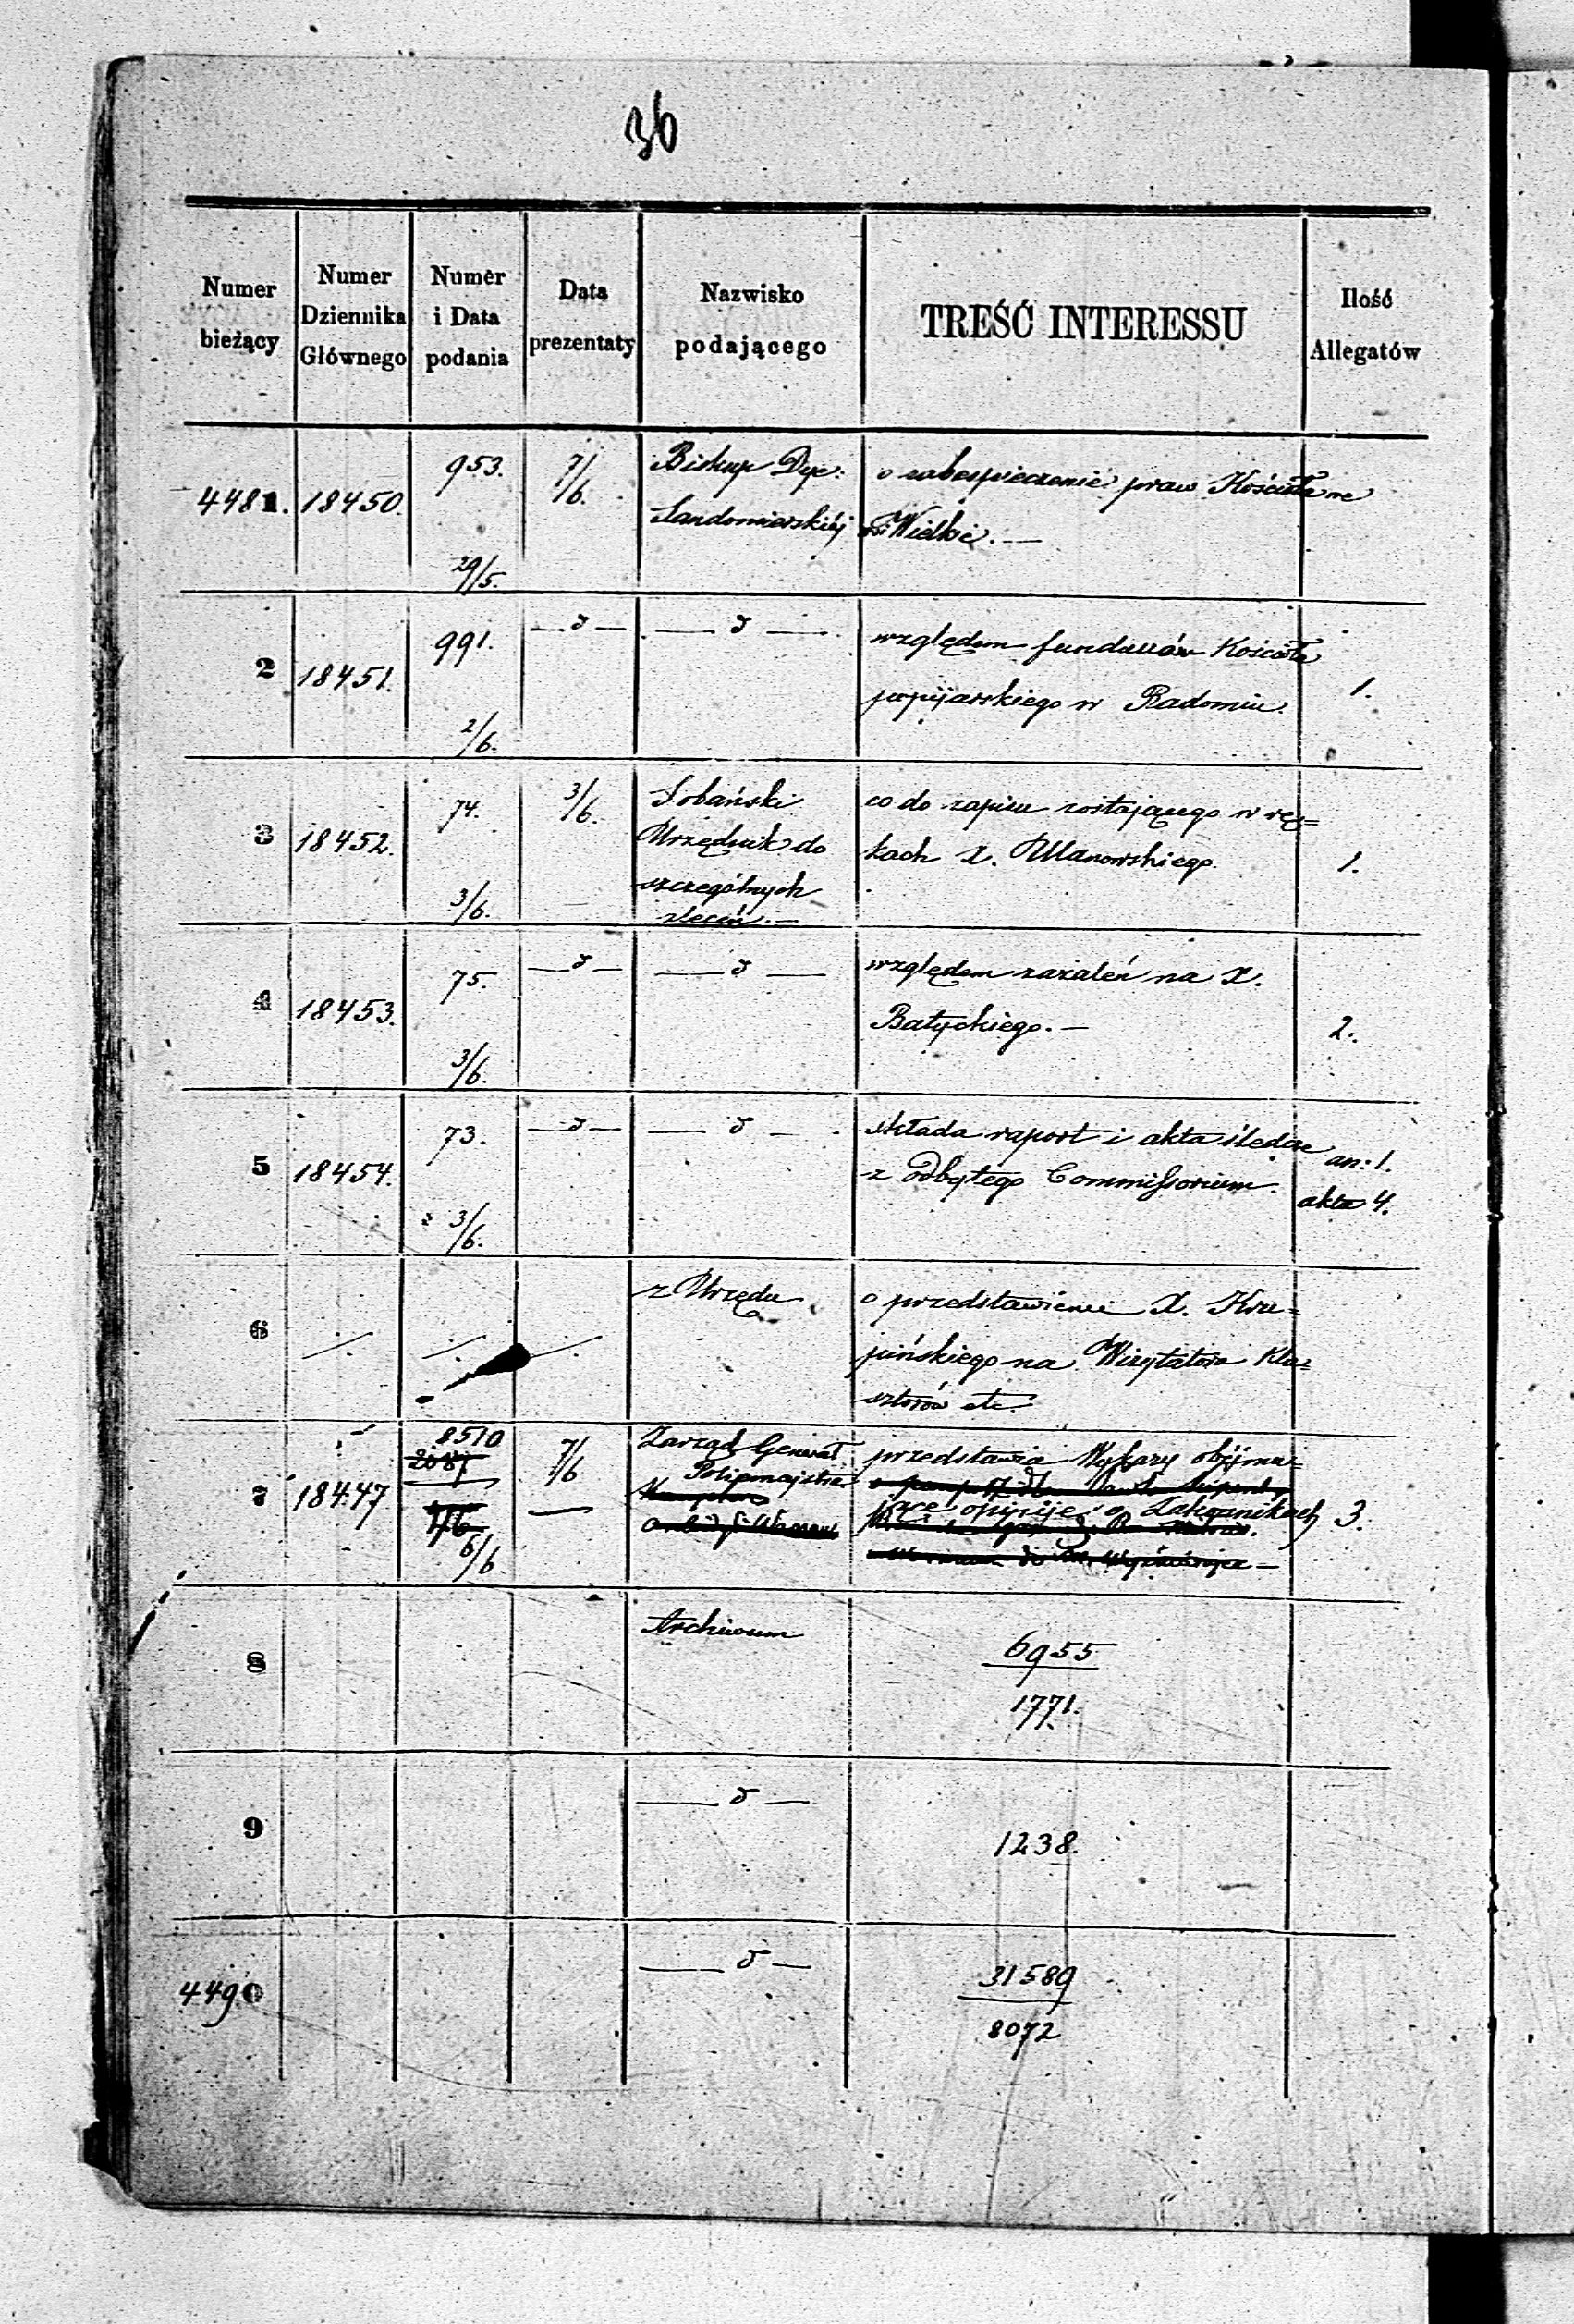 36
Numer bieżący
Numer Dziennika Głównego
Numer i Data podania
Data prezentaty
Nazwisko podającego
TREŚĆ INTERESSU
Ilość Allegatów
4481. 18450. 953. 29/5. 7/6. Biskup Dyec: o zabespieczenie praw Kościoła we
Sandomierskiéj wsi Wielkie. —
2 18451. 991. 2/6. — d — — d — względem funduszów Kościoła 1.
popijarskiego w Radomiu.
3 18452. 74. 3/6. 3/6. Sobański co do zapisu zostającego w rę= 1.
Urzędnik do kach X. Ulanowskiego.
szczególnych
zleceń. —
4 18453. 75. 3/6. — d — — d — względem zażaleń na X. 2.
Batyckiego. —
5 18454. 73. 3/6. — d — — d — składa raport i akta śledcze an: 1.
z odbytego Commissorium. akta 4.
6 z Urzędu o przedstawienie X. Kru=
pińskiego na Wizytatora Kla=
sztorów etc.
7 18447 8510 6/6 7/6 Zarząd Generał przedstawia Wykazy obejmu= 3.
Policmajstra jące opinije o Zakonnikach
8 Archiwum 6955
1771.
9 — d — 1238.
4490 — d — 31589
8072